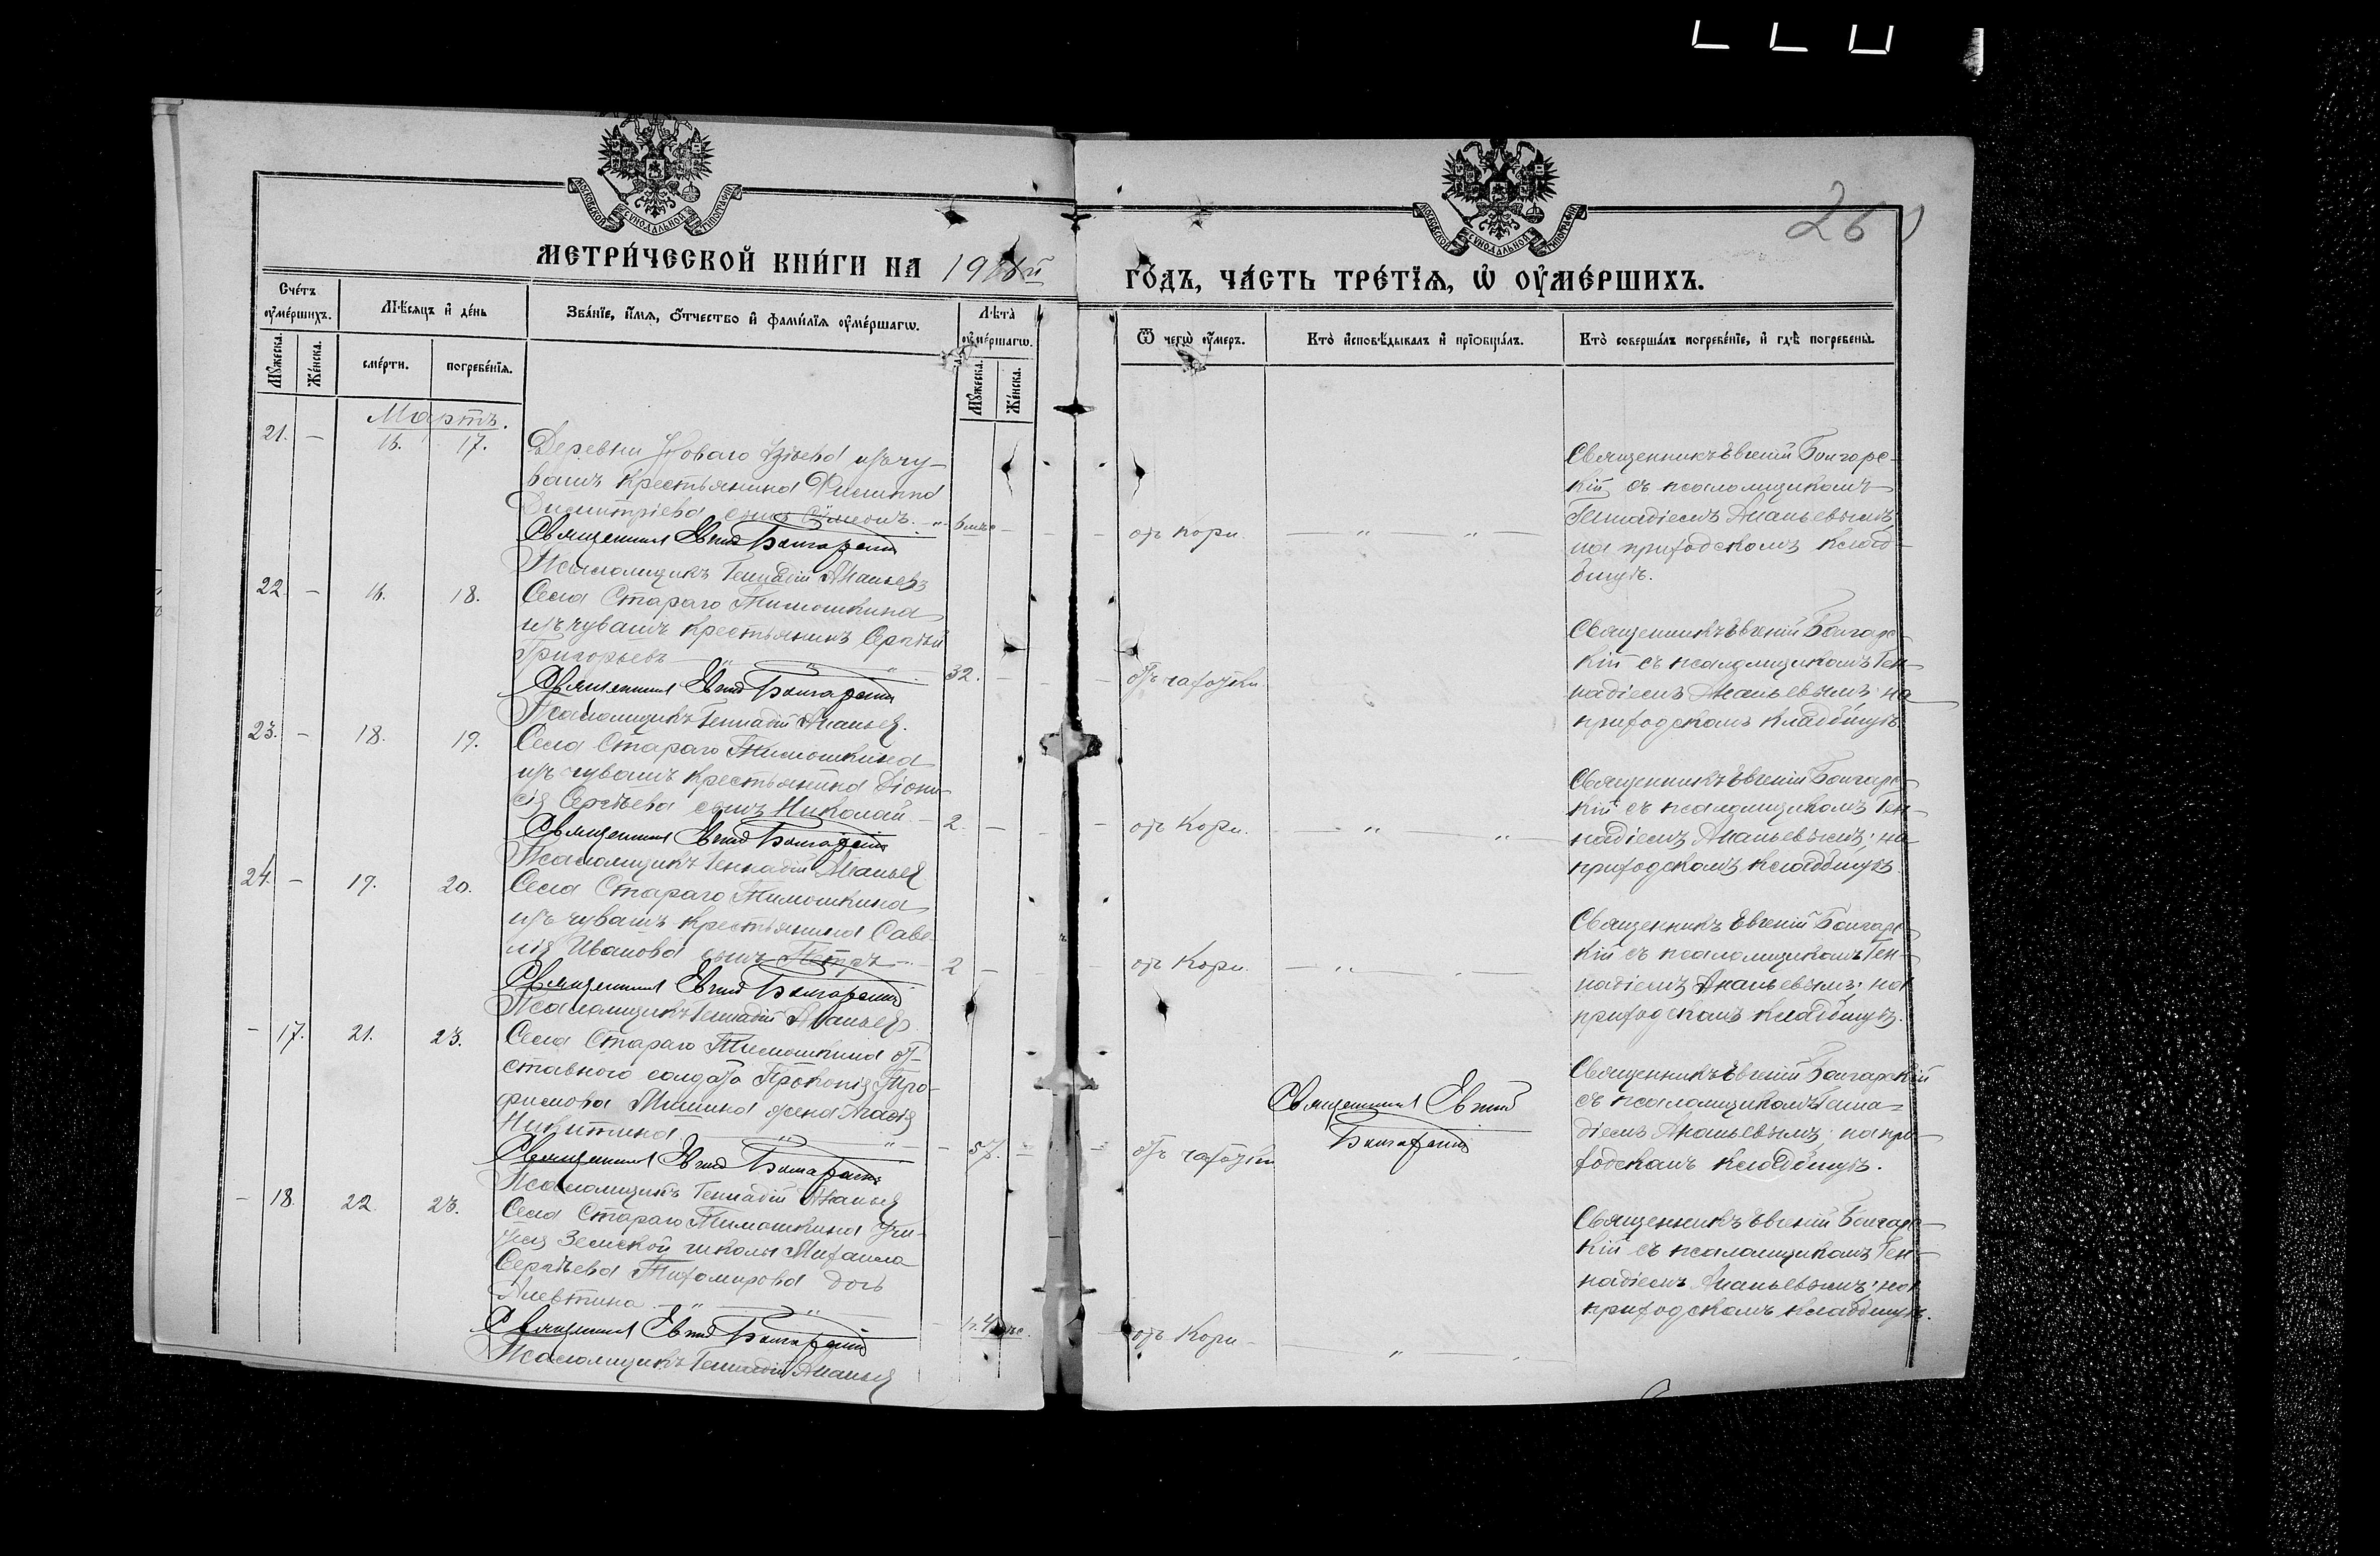 МОСКОВСКОЙ СѴНОДАЛЬНОЙ ТИПОГРАФІИ
МОСКОВСКОЙ СѴНОДАЛЬНОЙ ТИПОГРАФІИ
МЕТРИ́ЧЕСКОЙ КНИ́ГИ НА
ГО́ДЪ, ЧА́СТЬ ТРЕ́ТЇѦ, Ѡ҆ ОУ҆МЕ́РШИХЪ.
Сче́тъ оу҆ме́ршихъ.
Мѣ́сяцъ и҆ де́нь
Зва́нїе, и҆́мѧ, ѻ҆́тчество и҆ фамі́лїѧ оу҆ме́ршагѡ.
Лѣ̑та̀ оу҆ме́ршагѡ.
Ѿ чегѡ̀ оу҆́меръ.
Кто̀ и҆сповѣ́дывалъ и҆ прїѡбща́лъ.
Кто̀ соверша́лъ погребе́нїе, и҆ гдѣ̀ погребены̀.
Мꙋ́жеска.
Же́нска.
сме́рти.
погребе́нїѧ.
Мꙋ́жеска.
Же́нска.
Мартъ.
21. — 16. 17.
Деревни Новаго
вашъ крестьянина Филиппа
Димитріева сынъ Симеонъ. — 6 мѣс —
Священникъ Евгеній Болгарскій
Псаломщикъ Геннадій Ананьевъ
отъ кори.
Священникъ Евгеній Болгарс-
кій съ псаломщикомъ
Геннадіемъ Ананьевымъ;
на приходскомъ клад-
бищѣ.
22. — 16. 18.
Села Стараго Тимошкина
изъ чувашъ крестьянинъ Сергѣй
Григорьевъ — 32. —
Священникъ Евгеній Болгарскій
Псаломщикъ Геннадій Ананьевъ.
отъ чахотки.
Священникъ Евгеній Болгарс-
кій съ псаломщикомъ Ген-
надіемъ Ананьевымъ; на
приходскомъ кладбищѣ.
23. — 18. 19.
Села Стараго Тимошкина
изъ чувашъ крестьянина Діони-
сія Сергѣева сынъ Николай — 2. —
Священникъ Евгеній Болгарскій
Псаломщикъ Геннадій Ананьевъ
отъ кори.
Священникъ Евгеній Болгарс-
кій съ псаломщикомъ Ген-
надіемъ Ананьевымъ; на
приходскомъ кладбищѣ.
24. — 19. 20.
Села Стараго Тимошкина
изъ чувашъ крестьянина Саве-
лія Иванова сынъ Петръ — 2 —
Священникъ Евгеній Болгарскій
Псаломщикъ Геннадій Ананьевъ
отъ кори.
Священникъ Евгеній Болгарс-
кій съ псаломщикомъ Ген-
надіемъ Ананьевымъ; на
приходскомъ кладбищѣ.
— 17. 21. 23.
Села Стараго Тимошкина от-
ставного солдата Прокопія Тро-
фимова жена
Никитина — 57.
Священникъ Евгеній Болгарскій
Псаломщикъ Геннадій Ананьевъ
отъ чахотки
Священникъ Евгеній
Болгарскій
Священникъ Евгеній Болгарскій
съ псаломщикомъ Генна-
діемъ Ананьевымъ; на при-
ходскомъ кладбищѣ.
— 18. 22. 23.
Села Стараго Тимошкина учи-
теля Земской школы Михаила
Сергѣева Тихомирова дочь
Алевтина
Священникъ Евгеній Болгарскій
Псаломщикъ Геннадій Ананьевъ
отъ кори
Священникъ Евгеній Болгарс-
кій съ псаломщикомъ Ген-
надіемъ Ананьевымъ; на
приходскомъ кладбищѣ.